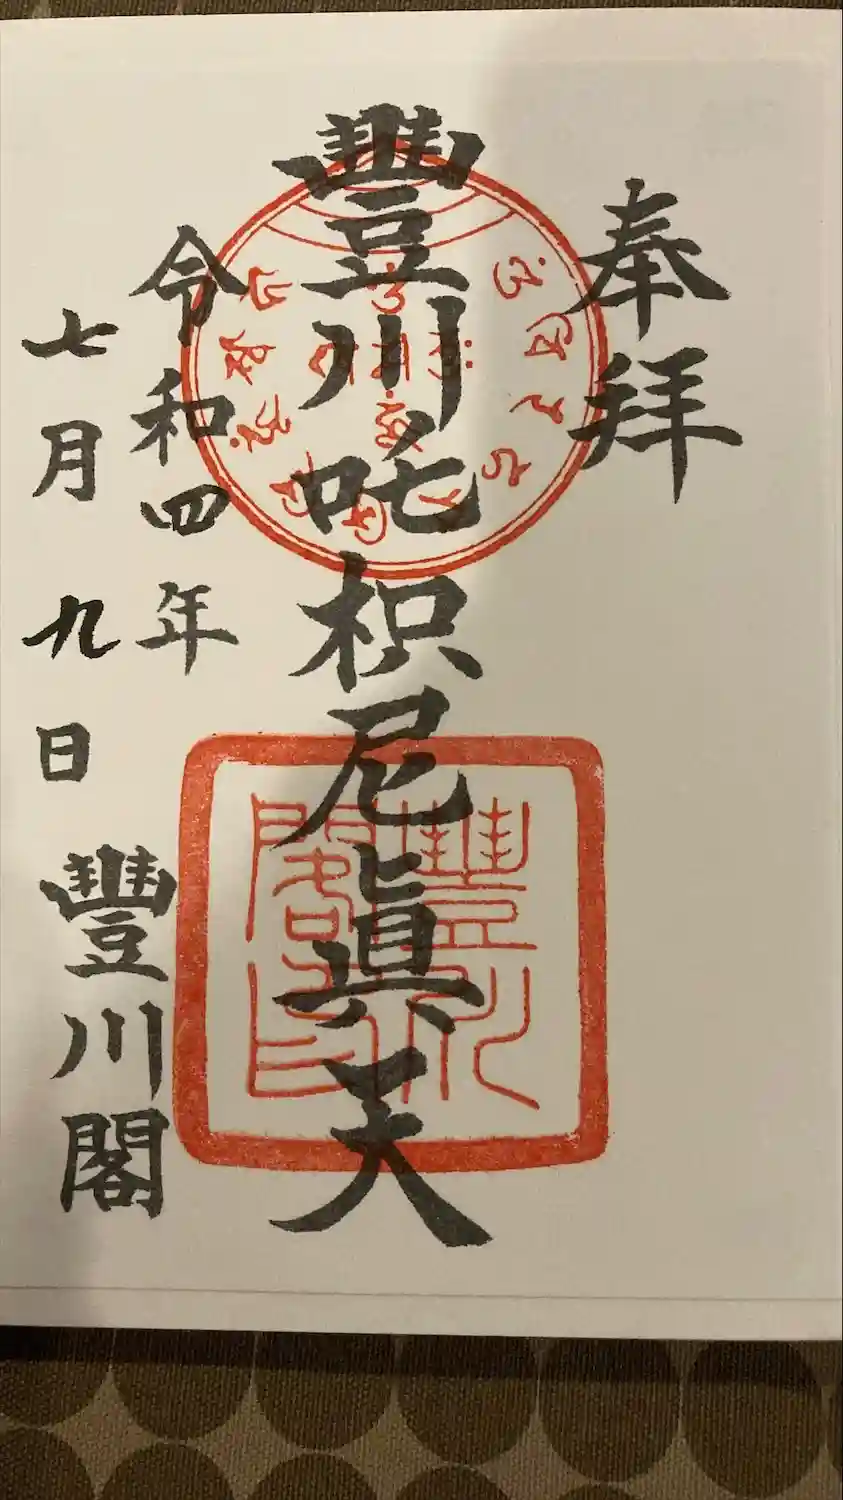 奉拝
豐川吒枳尼眞天
令和四年
七月九日
豐川閣
豐川閣印